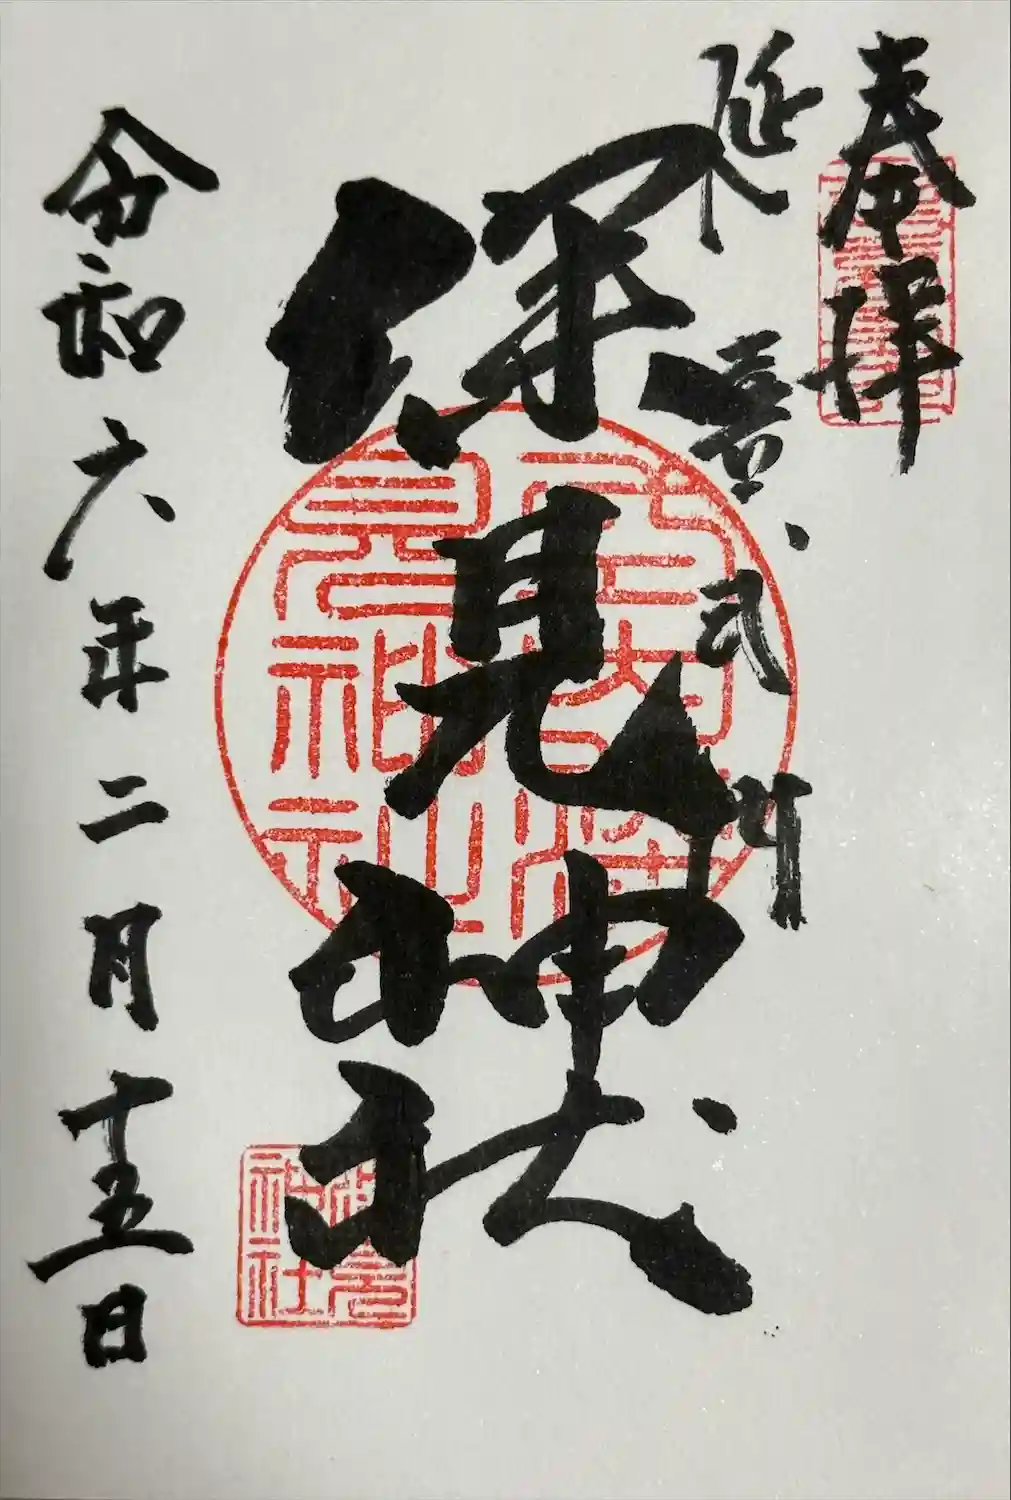 奉拝
延喜式内
深見神社
令和六年二月十五日